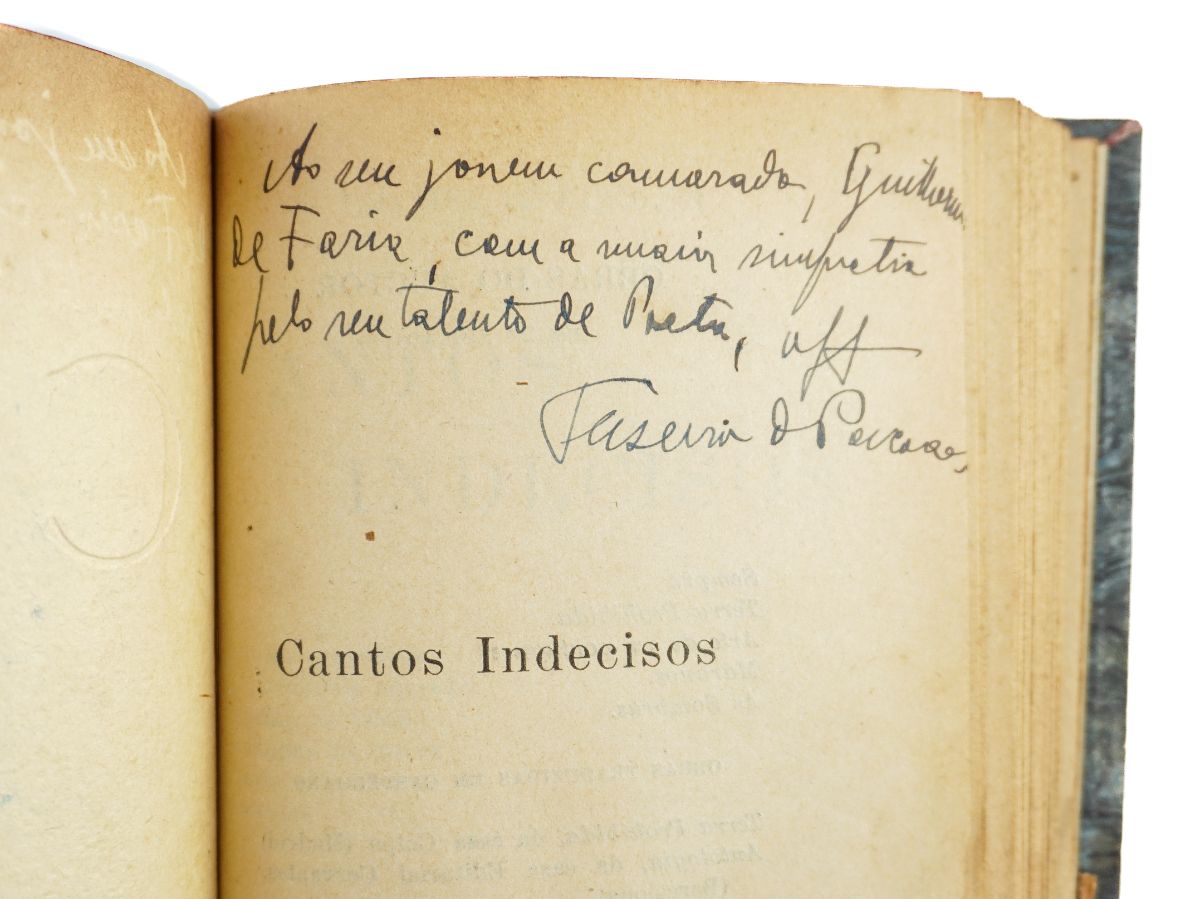 Ao seu jovem camarada, Guilherme
de Faria, com a maior simpatia
pelo seu talento de Poeta, off
Teixeira de Pascoaes,
Cantos Indecisos